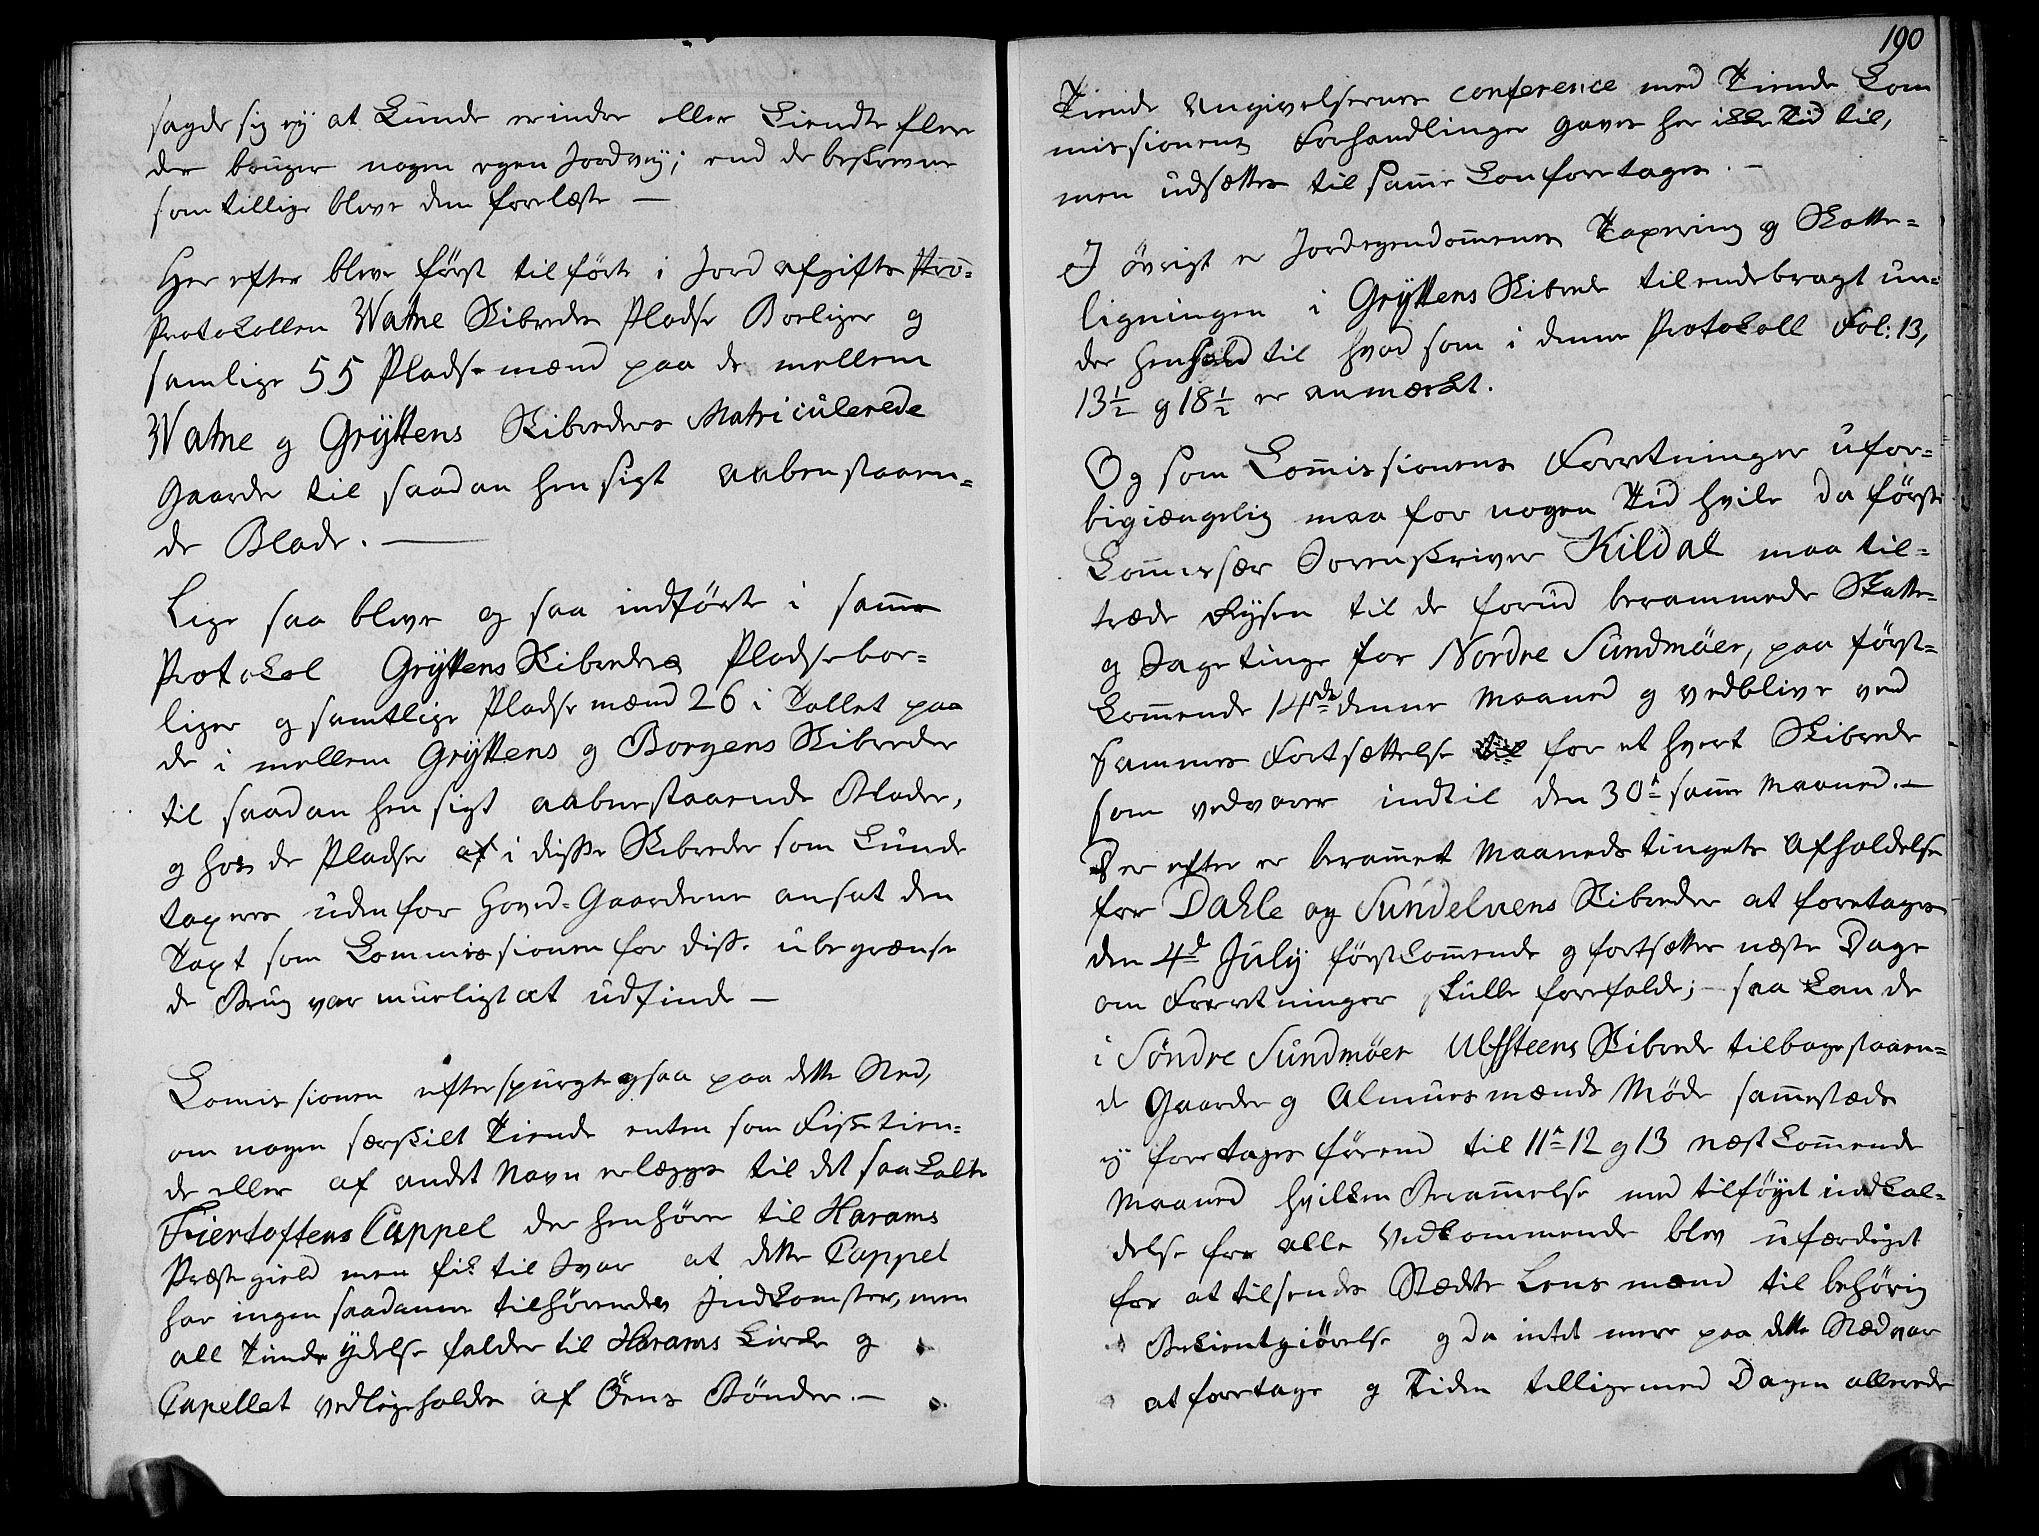 sagde sig ey at kunde erindre eller kiendte flere
der bruger nogen egen Jordvey; end de beskrevne
som tillige bleve dem forelæste —
Her efter bleve først tilført i Jord afgifts Pro=
Protokollen Watne Skibredes Pladse Boeliger og
samlige 55 Pladsemænd paa de mellem
Watne og Gryttens Skibreders Matriculerede
Gaarde til saadan hensigt aabenstaaen=
de Blade. —
Lige saa bleve og saa indførte i samme
Protokol Gryttens Skibredes Pladseboe=
liger og samtlige Pladsemænd 26 i Tallet paa
de i mellem Gryttens og Borgens Skibreder
til saadan hensigt aabnestaaende Blader,
og hos de Pladser af i disse Skibreder som kunde
taxeres uden for Hoved=Gaardene ansat den
Taxt som Commissionen for diss. ubegrænse
de Brug var mueligt at udfinde —
Comissionen efterspurgte ogsaa paa dette Sted,
om nogen særskilt Tiende enten som Fisketien=
de eller af andet Navn erlægges til det saa kalte
Fiertoftens Cappel der henhører til Harams
Præstegield men fik til Svar at dette Cappel
har ingen saadanne tilhørende Indkomster, men
all Tiende ydelse falder til Harams Kirke og
Capellet vedligeholdes af Øens Bønder. —
190
Tiende Angivelsernes conference med Tiende Com
missionens Forhandlinger gaves her ikke Tid til,
men udsættes til samme kan foretages. —
I øvrigt er Jordegendommenes Taxering og Skatte=
ligningen i Gryttens Skibrede tilendebragt un=
der henhold til hvad som i denne Protokoll Fol: 13,
13½ og 18½ er anmærkt.
Og som Commissionens Forretninger ufor=
bigiængelig maa for nogen Tid hvile da første
Commissær Sorenskriver Kildal maa til=
træde Reysen til de forud berammede Skatte=
og Sage tinge for Nordre Sundmöer, paa først=
kommende 14de denne Maaned og vedblive ved
sammes Fortsættelse til for et hvert Skibrede
som vedvarer indtil den 30te samme Maaned. —
Der efter er berammet Maaneds tingets Afholdelse
for Dahle og Sundelvens Skibreder at foretages
den 4de July førstkommende og fortsættes næste Dage
om Forretninger skulle forefalde; — saa kan de
i Söndre Sundmöer Ulfsteens Skibrede tilbagestaaen=
de Gaarde og Almuesmænds Møde sammestæds
ey foretages førend til 11te 12 og 13 næstkommende
Maaned hvilken Berammelse med tilføyet indkal=
delse for alle Vedkommende blev uferdiget
for at tilsendes Stædets Lensmænd til behørig
Bekientgiørelse og da intet mere paa dette Sted var
at foretage og Tiden tilligemed Dagen allerede